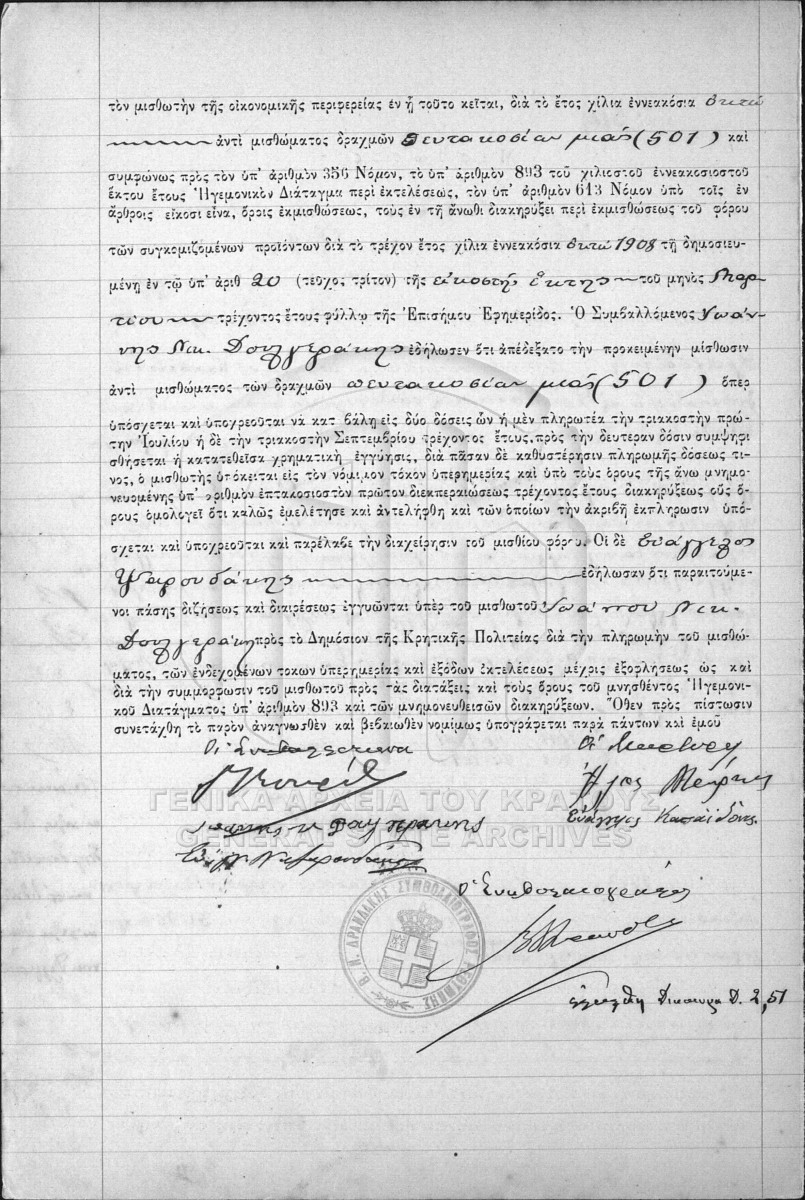 τὸν μισθωτὴν τῆς οἰκονομικῆς περιφερείας ἐν ᾗ τοῦτο κεῖται, διὰ τὸ ἔτος χίλια ἐννεακόσια ὀκτώ
ἀντὶ μισθώματος δραχμῶν πεντακοσίων μιᾶς (501) καὶ
συμφώνως πρὸς τὸν ὑπ' ἀριθμὸν 356 Νόμον, τὸ ὑπ' ἀριθμὸν 893 τοῦ χιλιοστοῦ ἐννεακοσιοστοῦ
ἕκτου ἔτους Ἡγεμονικὸν Διάταγμα περὶ ἐκτελέσεως, τὸν ὑπ' ἀριθμὸν 613 Νόμον ὑπὸ τοῖς ἐν
ἄρθροις εἴκοσι εἶνα, ὅροις ἐκμισθώσεως, τοὺς ἐν τῇ ἄνωθι διακηρύξει περὶ ἐκμισθώσεως τοῦ φόρου
τῶν συγκομιζομένων προϊόντων διὰ τὸ τρέχον ἔτος χίλια ἐννεακόσια ὀκτώ 1908 τῇ δημοσιευ-
μένῃ ἐν τῷ ὑπ' ἀριθ 20 (τεῦχος τρίτον) τῆς εἰκοστῆς ἕκτης τοῦ μηνὸς Μαρ-
τίου τρέχοντος ἔτους φύλλῳ τῆς Ἐπισήμου Ἐφημερίδος. Ὁ Συμβαλλόμενος Ἰωάν-
νης Νικ. Δουλγεράκης ἐδήλωσεν ὅτι ἀπεδέξατο τὴν προκειμένην μίσθωσιν
ἀντὶ μισθώματος τῶν δραχμῶν πεντακοσίων μιᾶς (501) ὅπερ
ὑπόσχεται καὶ ὑποχρεοῦται νὰ κατ βάλῃ εἰς δύο δόσεις ὧν ἡ μὲν πληρωτέα τὴν τριακοστὴν πρώ-
την Ἰουλίου ἡ δὲ τὴν τριακοστὴν Σεπτεμβρίου τρέχοντος ἔτους, πρὸς τὴν δευτέραν δόσιν συμψηφι
σθήσεται ἡ κατατεθεῖσα χρηματικὴ ἐγγύησις, διὰ πᾶσαν δὲ καθυστέρησιν πληρωμῆς δόσεως τι-
νος, ὁ μισθωτὴς ὑπόκειται εἰς τὸν νόμιμον τόκον ὑπερημερίας καὶ ὑπὸ τοὺς ὅρους τῆς ἄνω μνημο-
νευομένης ὑπ' ἀριθμὸν ἑπτακοσιοστὸν πρῶτον διεκπεραιώσεως τρέχοντος ἔτους διακηρύξεως οὓς ὅ-
ρους ὁμολογεῖ ὅτι καλῶς ἐμελέτησε καὶ ἀντελήφθη καὶ τῶν ὁποίων τὴν ἀκριβῆ ἐκπλήρωσιν ὑπό-
σχεται καὶ ὑποχρεοῦται καὶ παρέλαβε τὴν διαχείρησιν τοῦ μισθίου φόρου. Οἱ δὲ Εὐάγγελος
Ψαρουδάκης ἐδήλωσαν ὅτι παραιτούμε-
νοι πάσης διζήσεως καὶ διαιρέσεως ἐγγυῶνται ὑπὲρ τοῦ μισθωτοῦ Ἰωάννου Νικ.
Δουλγεράκη πρὸς τὸ Δημόσιον τῆς Κρητικῆς Πολιτείας διὰ τὴν πληρωμὴν τοῦ μισθώ-
ματος, τῶν ἐνδεχομένων τόκων ὑπερημερίας καὶ ἐξόδων ἐκτελέσεως μέχρις ἐξοφλήσεως ὡς καὶ
διὰ τὴν συμμόρφωσιν τοῦ μισθωτοῦ πρὸς τὰς διατάξεις καὶ τοὺς ὅρους τοῦ μνησθέντος Ἡγεμονι-
κοῦ Διατάγματος ὑπ' ἀριθμὸν 893 καὶ τῶν μνημονευθεισῶν διακηρύξεων. Ὅθεν πρὸς πίστωσιν
συνετάχθη τὸ παρὸν ἀναγνωσθὲν καὶ βεβαιωθὲν νομίμως ὑπογράφεται παρὰ πάντων καὶ ἐμοῦ
Οἱ Συμβαλλόμενοι
Οἱ Μάρτυρες
Εὐάγγελος
ΓΕΝΙΚΑ ΑΡΧΕΙΑ ΤΟΥ ΚΡΑΤΟΥΣ
GENERAL STATE ARCHIVES
Ὁ Συμβολαιογράφος
ΣΥΜΒΟΛΑΙΟΓΡΑΦΟΥ
Δικαιωμ Δ. 2,51